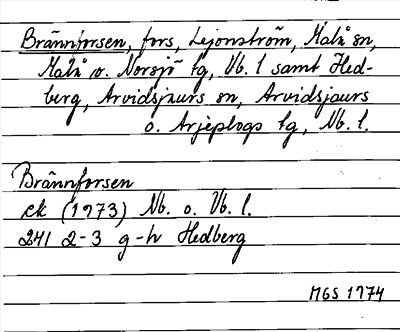 Brännforsen, fors, Lejonström, Malå sn,
Malå o. Norsjö tg, Vb. l samt Hed-
berg, Arvidsjaurs sn, Arvidsjaurs
o. Arjeplogs tg, Nb. l.
Brännforsen
ek (1973) Nb. o. Vb. l.
241 2-3 g-h Hedberg
MGS 1974